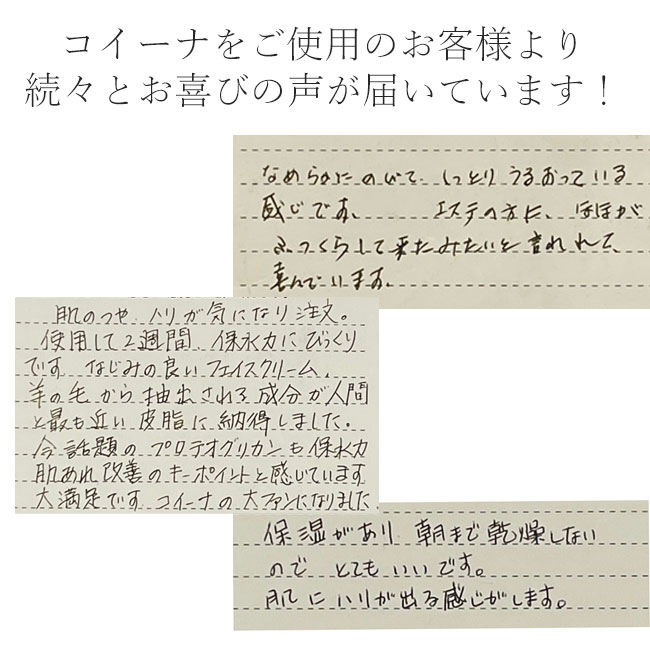 コイーナをご使用のお客様より
続々とお喜びの声が届いています！
なめらかにのびて、しっとりうるおっている
感じです。 エステの方に、ほほが
ふっくらして来たみたいと言われて、
喜んでいます。
肌のつや、ハリが気になり注文。
使用して2週間、保水力にびっくり
です。なじみの良いフェイスクリーム。
羊の毛から抽出される成分が人間
と最も近い皮脂に納得しました。
今話題のプロテオグリカンも保水力
肌あれ改善のキーポイントと感じています
大満足です コイーナの大ファンになりました
保湿があり 朝まで乾燥しない
ので とてもいいです。
肌にハリが出る感じがします。